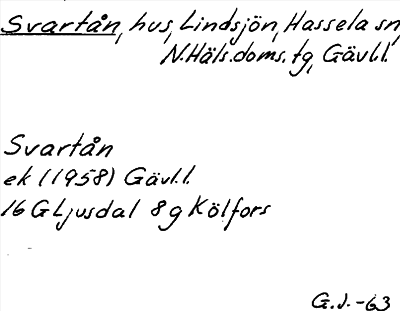 Svartån, hus, Lindsjön, Hassela sn,
N.Häls.doms.tg, Gävl.l.
Svartån
ek (1958) Gävl.l.
16 G Ljusdal 8 g Kölfors
G.J.-63